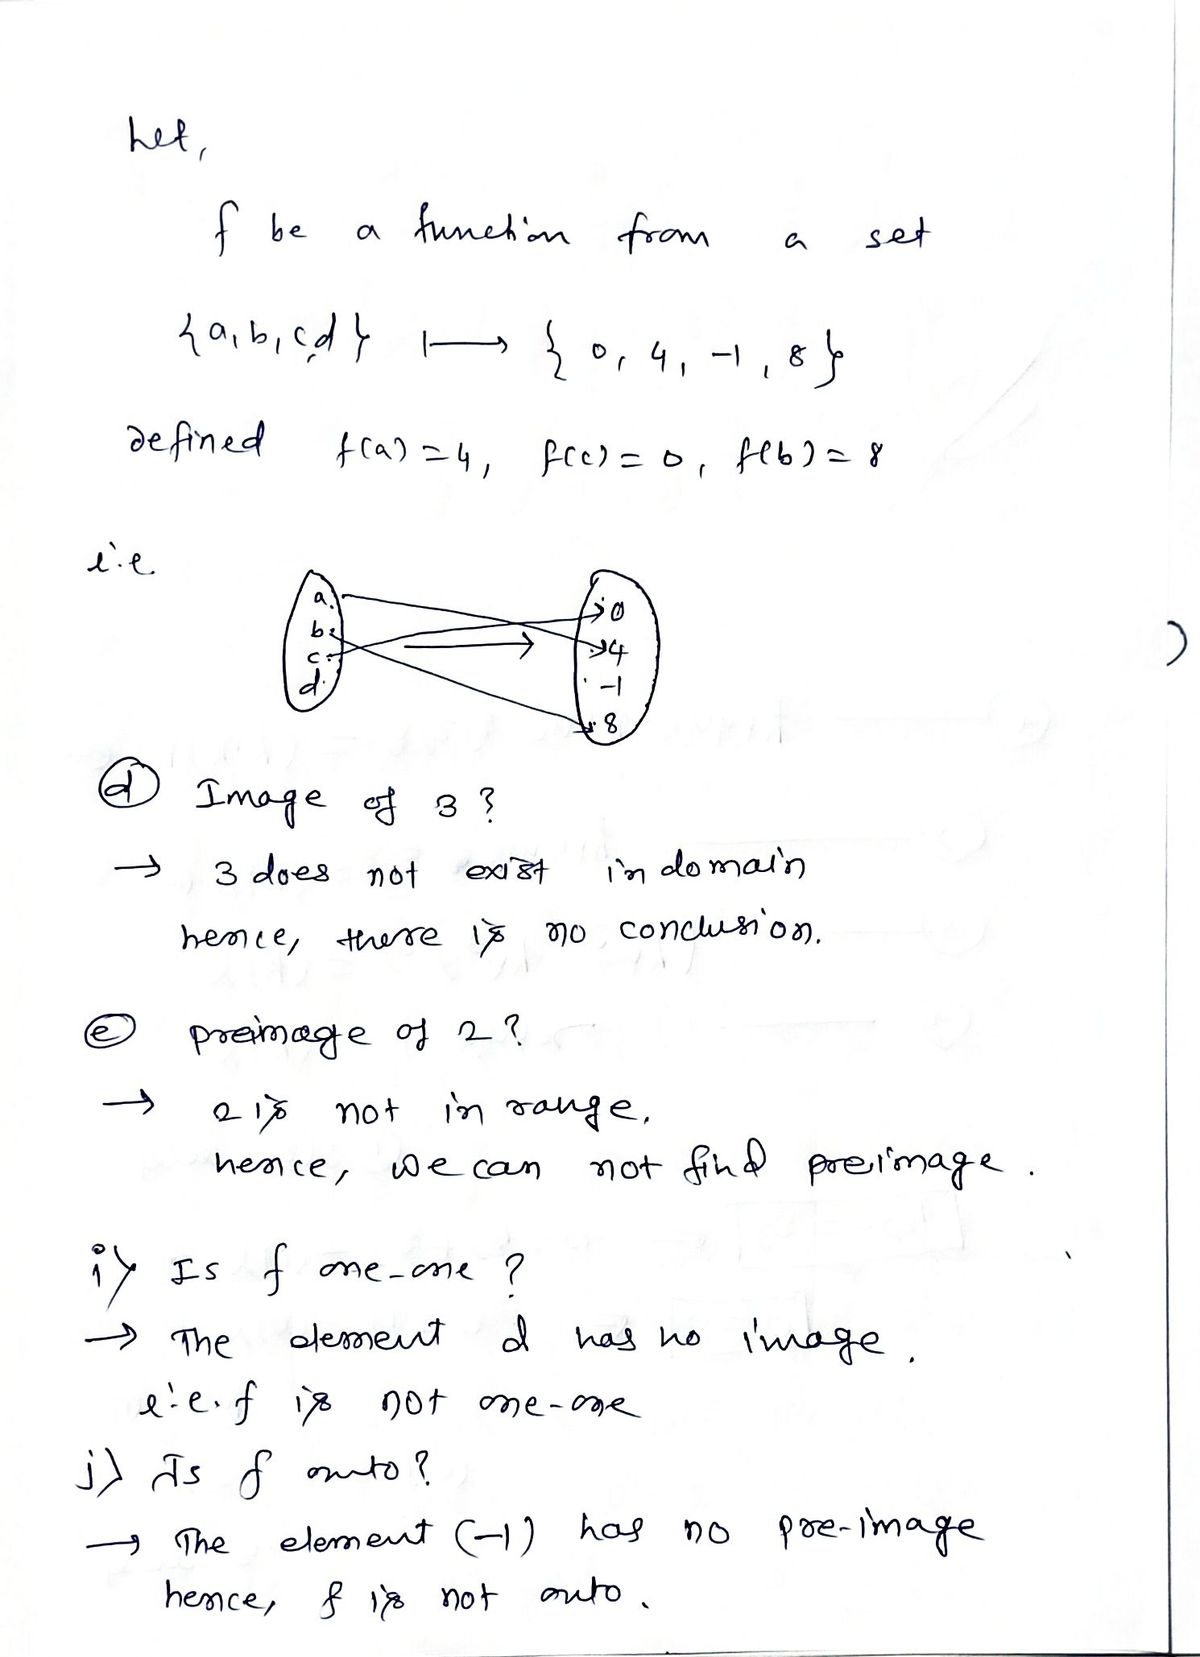 Let,
f be a function from a set
{a,b,c,d} ⟼ {0, 4, -1, 8}
defined f(a)=4, f(c)=0, f(b)=8
i.e
a. .0
b. .4
c. . -1
d. .8
ⓓ Image of 3?
→ 3 does not exist in domain
hence, there is no conclusion.
ⓔ preimage of 2?
→ 2 is not in range.
hence, we can not find preimage.
i) Is f one-one?
→ The element d has no image.
i.e. f is not one-one
j) Is f onto?
→ The element (-1) has no pre-image
hence, f is not onto.